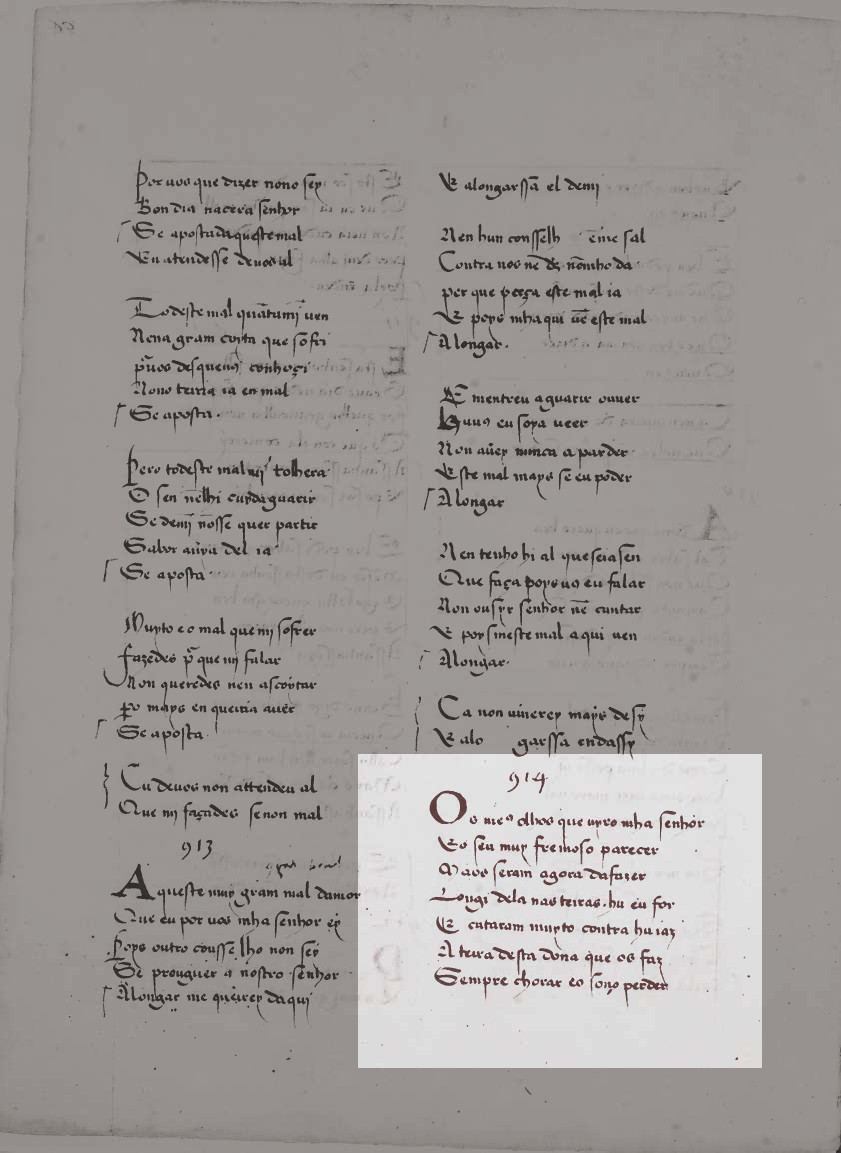 Por uos que dizer nono sey
Bon dia nacera senhor
Se apostadaqueste mal
Eu atendesse deuos al
Todeste mal quãtumi uen
Nena gram coyta que sofri
Nono terria ia en mal
Se aposta.
Pero todeste mal mj tolhera
O sen nẽlhi cuyda guarir
Se demj nosse quer partir
Sabor auria del ia
Se aposta
Muyto e o mal que mj sofrer
fazedes pr̃ que mj falar
Non queredes nen ascoytar
ꝑo mays en queiria auer
Se aposta.
Eu deuos non attendeu al
Que mj façades se non mal
913
Aqueste muy gram mal damor
Que eu por uos mha senhor ey
Poys outro cousselho non sey
Se prouguer a nostro senhor
Alongar me queirey daqui
E alongarssã el demj
Nen hun consselh ẽme fal
Contra uos nẽ ds̃ nõmho da
per que perça este mal ia
E poys mha qui uẽ este mal
Alongar.
E mentreu aguarir ouuer
eu soya ueer
Non auey nũca a parder
Este mal mays se eu poder
Alongar
Nen tenho hi al que seia sen
Que faça poys uꝯ eu falar
Non ousyr senhor nẽ cantar
E poys meste mal aqui uen
Alongar.
Ca non uiuerey mays de sy
E alo garssa endassy
914
Os meꝯ olhos que uyro mha senhor
Eo seu muy fremoso parecer
Maos seram agora dafazer
Longi dela nas teiras. hu eu for
E cataram muyto contra hu iaz
A teira desta dona que os faz
Sempre chorar eo sono perder